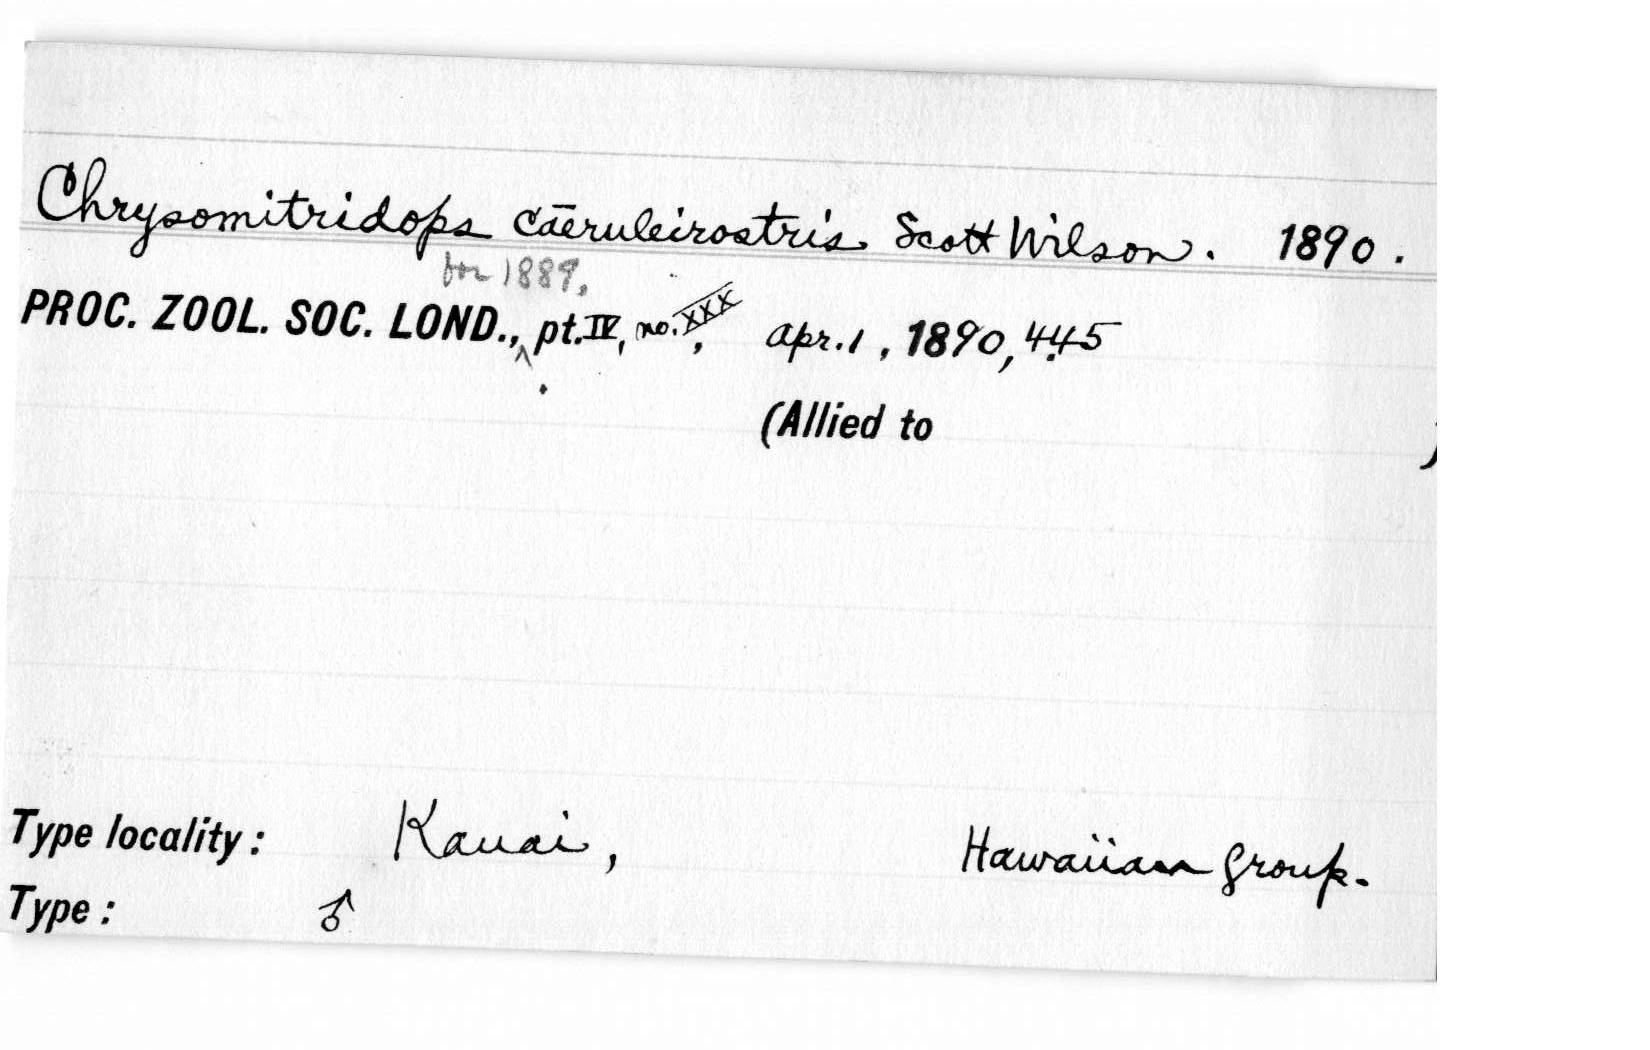 Chrysomitridops cāeruleirostris Scott Wilson. 1890.
for 1889,
PROC. ZOOL. SOC. LOND., ‸ pt. IV, no. XXX, Apr. 1, 1890, 445
(Allied to )
Type locality: Kauai, Hawaiian Group.
Type: ♂